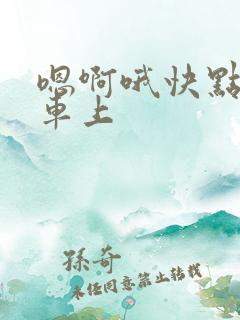 嗯啊哦快點
車上
孫奇
未经同意禁止转载